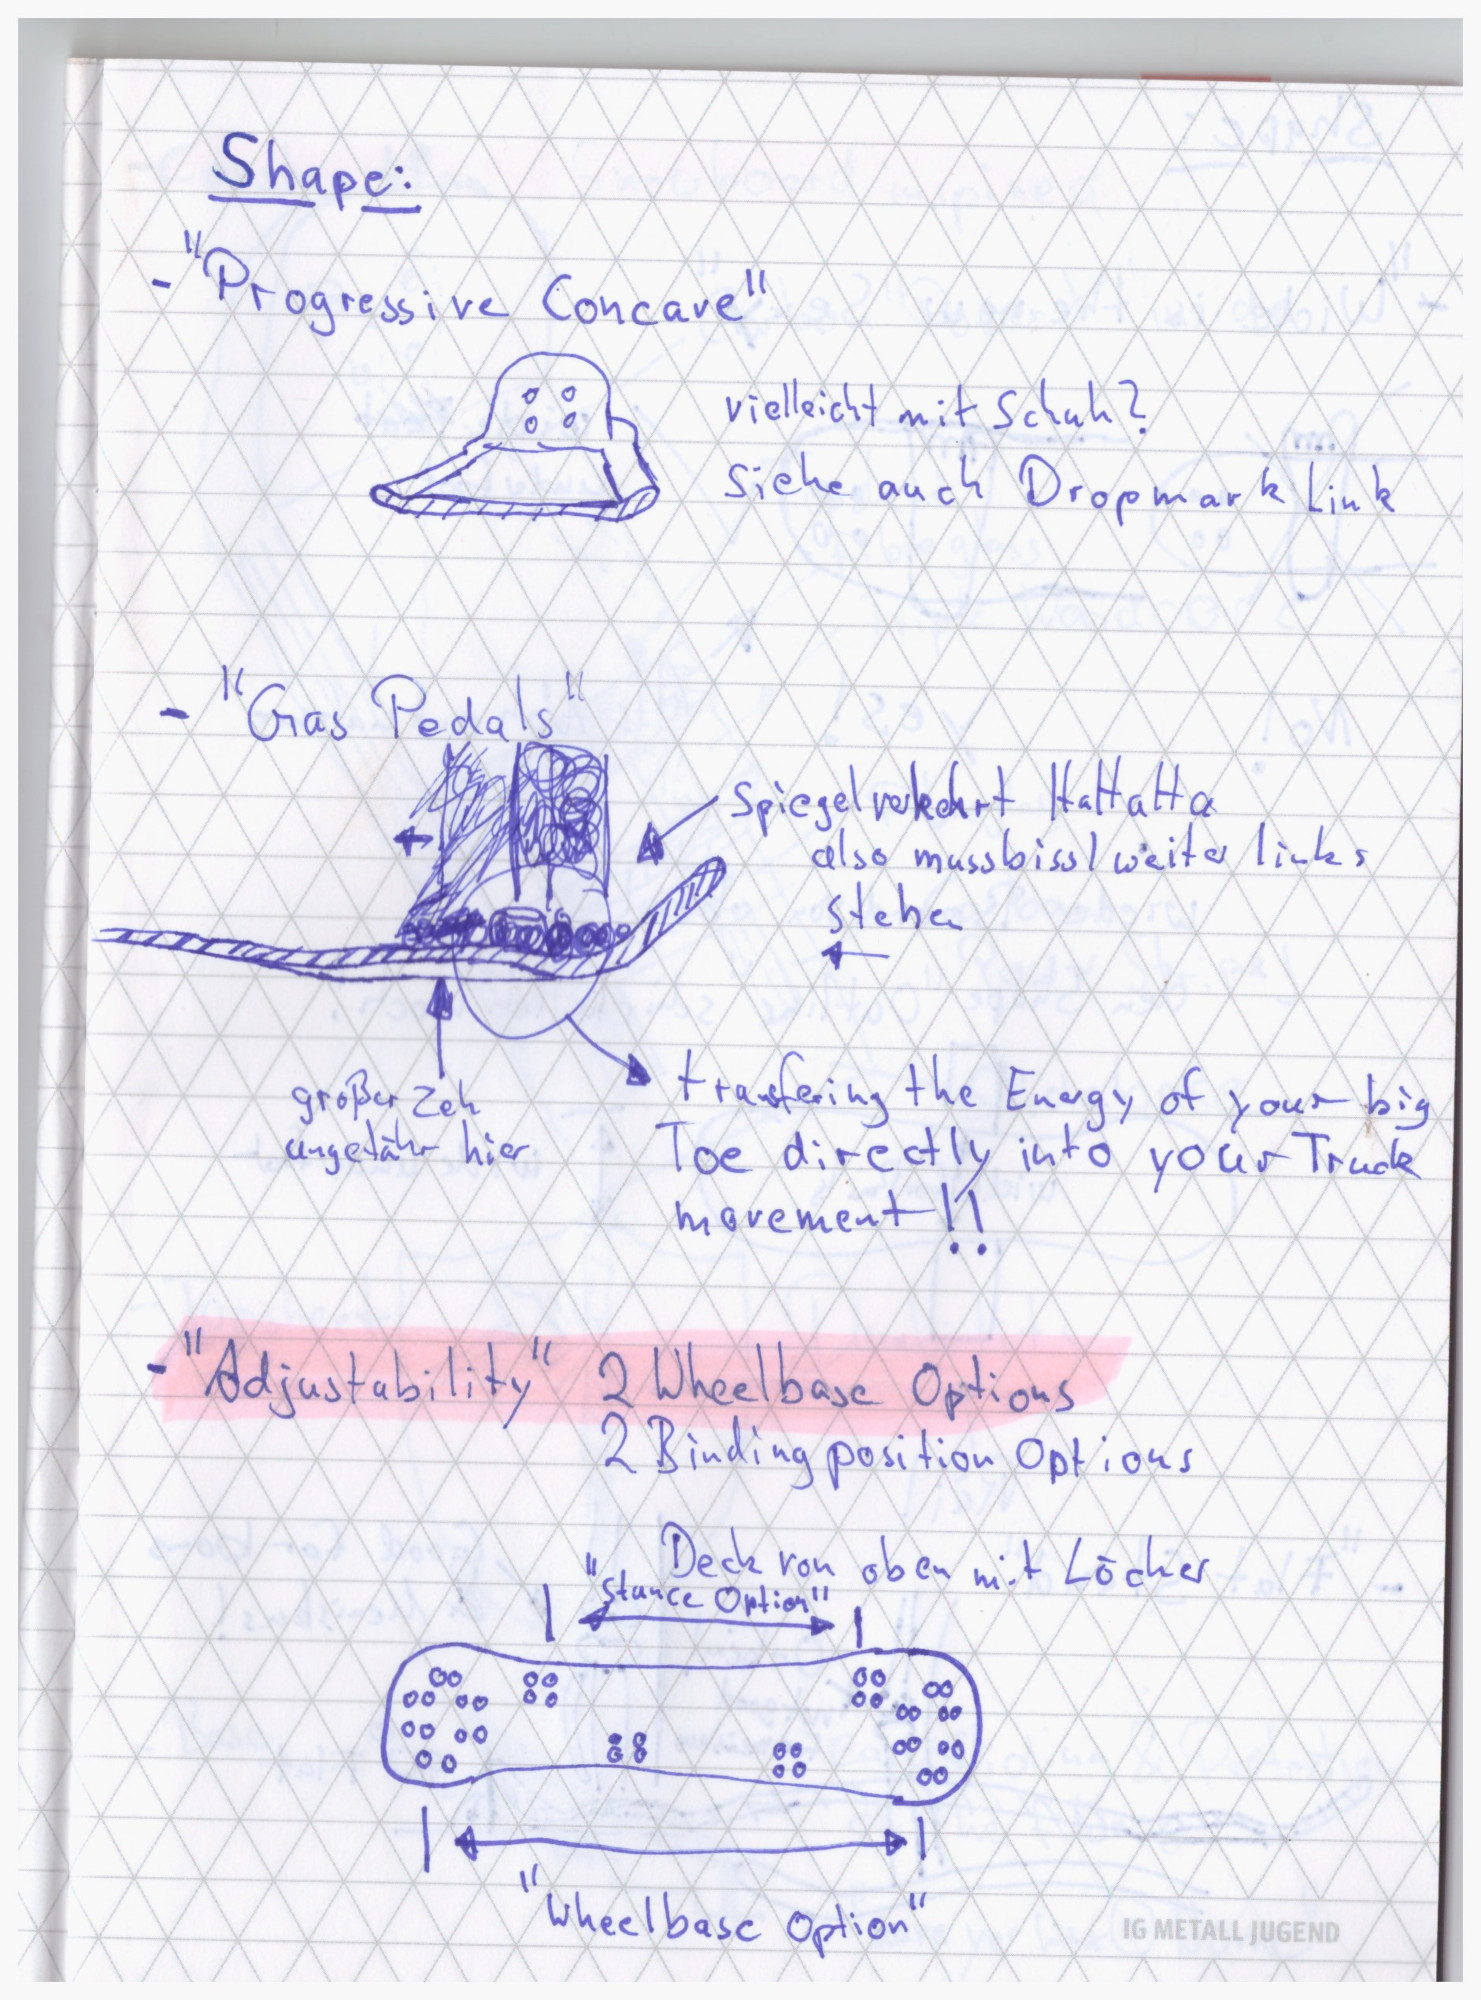 Shape:
- "Progressive Concave"
vielleicht mit Schuh?
Siehe auch Dropmark Link
- "Gas Pedals"
Spiegelverkehrt HaHaHa
also muss bissl weiter links
stehen
großer Zeh
ungefähr hier
transfering the Energy of your big
Toe directly into your Truck
movement!!
- "Adjustability" 2 Wheelbase Options
2 Binding position Options
Deck von oben mit Löcher
"Stance Option"
"Wheelbase Option"
IG METALL JUGEND